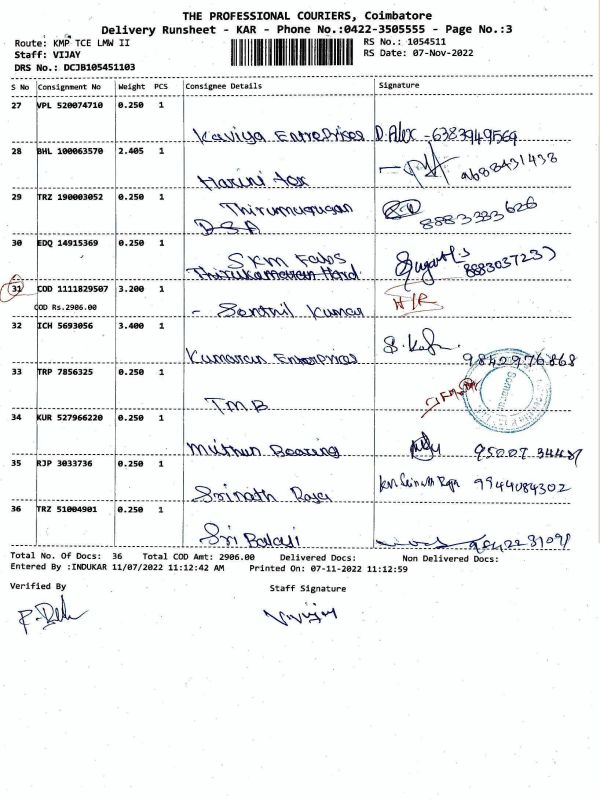 THE PROFESSIONAL COURIERS, Coimbatore
Delivery Runsheet - KAR - Phone No.:0422-3505555 - Page No.:3
Route: KMP TCE LMW II
RS No.: 1054511
Staff: VIJAY
RS Date: 07-Nov-2022
DRS No.: DCJB105451103
S No Consignment No Weight PCS Consignee Details Signature
27 VPL 520074710 0.250 1
Kaviya Enterprises D.Alex - 6383949569
28 BHL 100063570 2.405 1
Harini tex 9688431438
29 TRZ 190003052 0.250 1
Thirumurugan 8883333626
30 EDQ 14915369 0.250 1
SKM Fabs
31 COD 1111829507 3.200 1
COD Rs.2906.00
- Senthil Kumar H/R
32 ICH 5693056 3.400 1
Kumaran Enterprises 9842976868
33 TRP 7856325 0.250 1
TMB
34 KUR 527966220 0.250 1
Muthu Bearing
35 RJP 3033736 0.250 1
Srinath Raja 9944084302
36 TRZ 51004901 0.250 1
Sri Balaji
Total No. Of Docs: 36 Total COD Amt: 2906.00 Delivered Docs: Non Delivered Docs:
Entered By :INDUKAR 11/07/2022 11:12:42 AM Printed On: 07-11-2022 11:12:59
Verified By Staff Signature